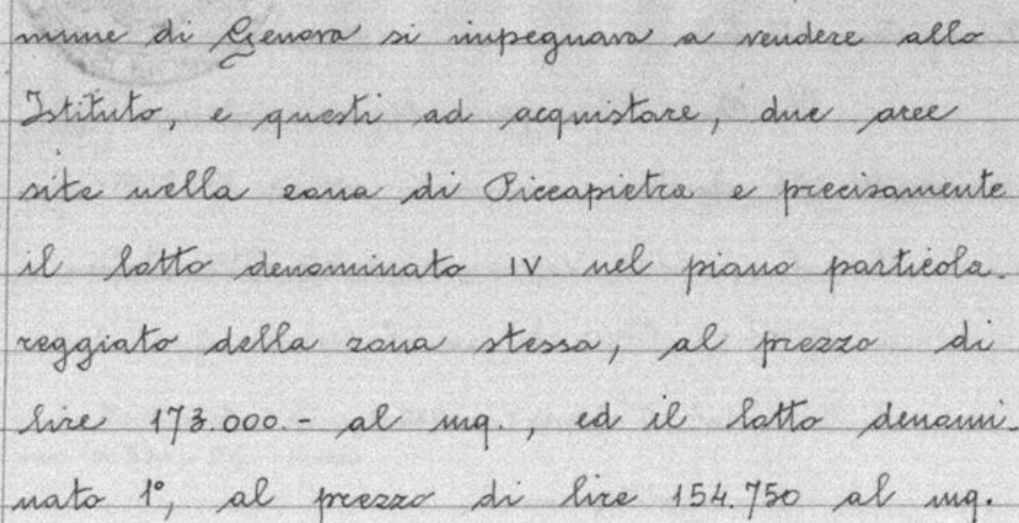 mune di Genova si impegnava a vendere allo
Istituto, e questi ad acquistare, due aree
site nella zona di Piccapietra e precisamente
il lotto denominato IV nel piano particola-
reggiato della zona stessa, al prezzo di
lire 173.000.- al mq., ed il lotto denomi-
nato 1°, al prezzo di lire 154.750 al mq.